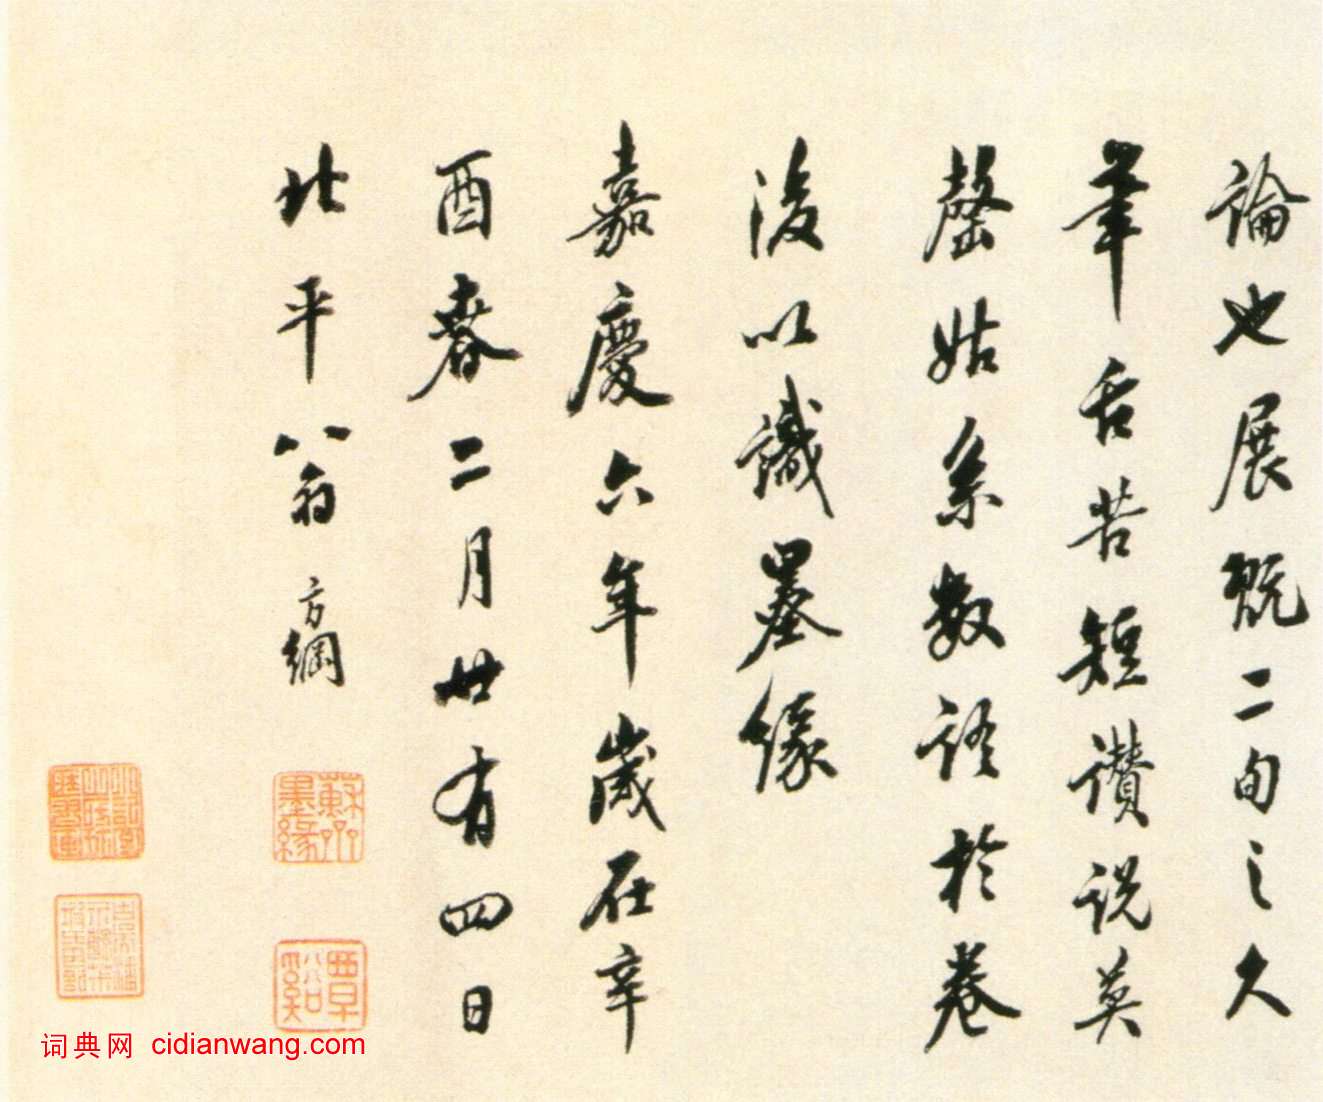 論也展翫二旬之久
筆舌苦短讚說莫
罄姑系數語於卷
後以識墨緣
嘉慶六年歲在辛
酉春二月廿有四日
北平翁方綱
蘇齋墨緣
覃谿
词典网 cidianwang.com